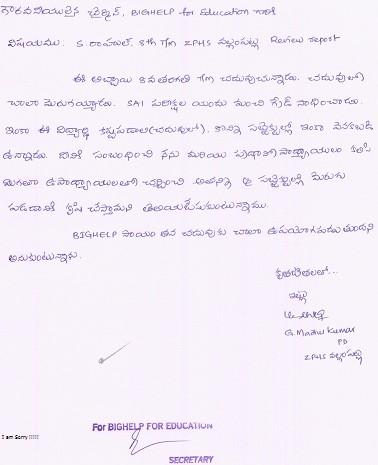 గౌరవనీయులైన ఛైర్మన్, BIGHELP for Education గారికి
విషయము: S. రాహుల్, 8th T/m ZPHS వల్లంపట్ల Review report
ఈ అబ్బాయి 8వ తరగతి T/m చదువుచున్నాడు. చదువులో
చాలా మెరుగయ్యాడు. SA1 పరీక్షల యందు మంచి గ్రేడ్ సాధించాడు.
ఇంకా ఈ విద్యార్థి కష్టపడాల (చదువులో), కొన్ని సబ్జెక్టుల్లో ఇంకా వెనకబడి
ఉన్నాడు. దానికి సంబంధించి నేను మరియు ప్రధానోపాధ్యాయులం కలిసి
మిగతా ఉపాధ్యాయులతో చర్చించి అతనిని ఆ సబ్జెక్టుల్లో మెరుగు
పడడానికి కృషి చేస్తామని తెలియజేసుకుంటున్నాము.
BIGHELP సాయం తన చదువుకు చాలా ఉపయోగపడుతుందని
అనుకుంటున్నాను.
కృతజ్ఞతలతో...
ఇట్లు
G. Madhu Kumar
PD
ZPHS వల్లంపట్ల
For BIGHELP FOR EDUCATION
I am Sorry !!!!!
SECRETARY